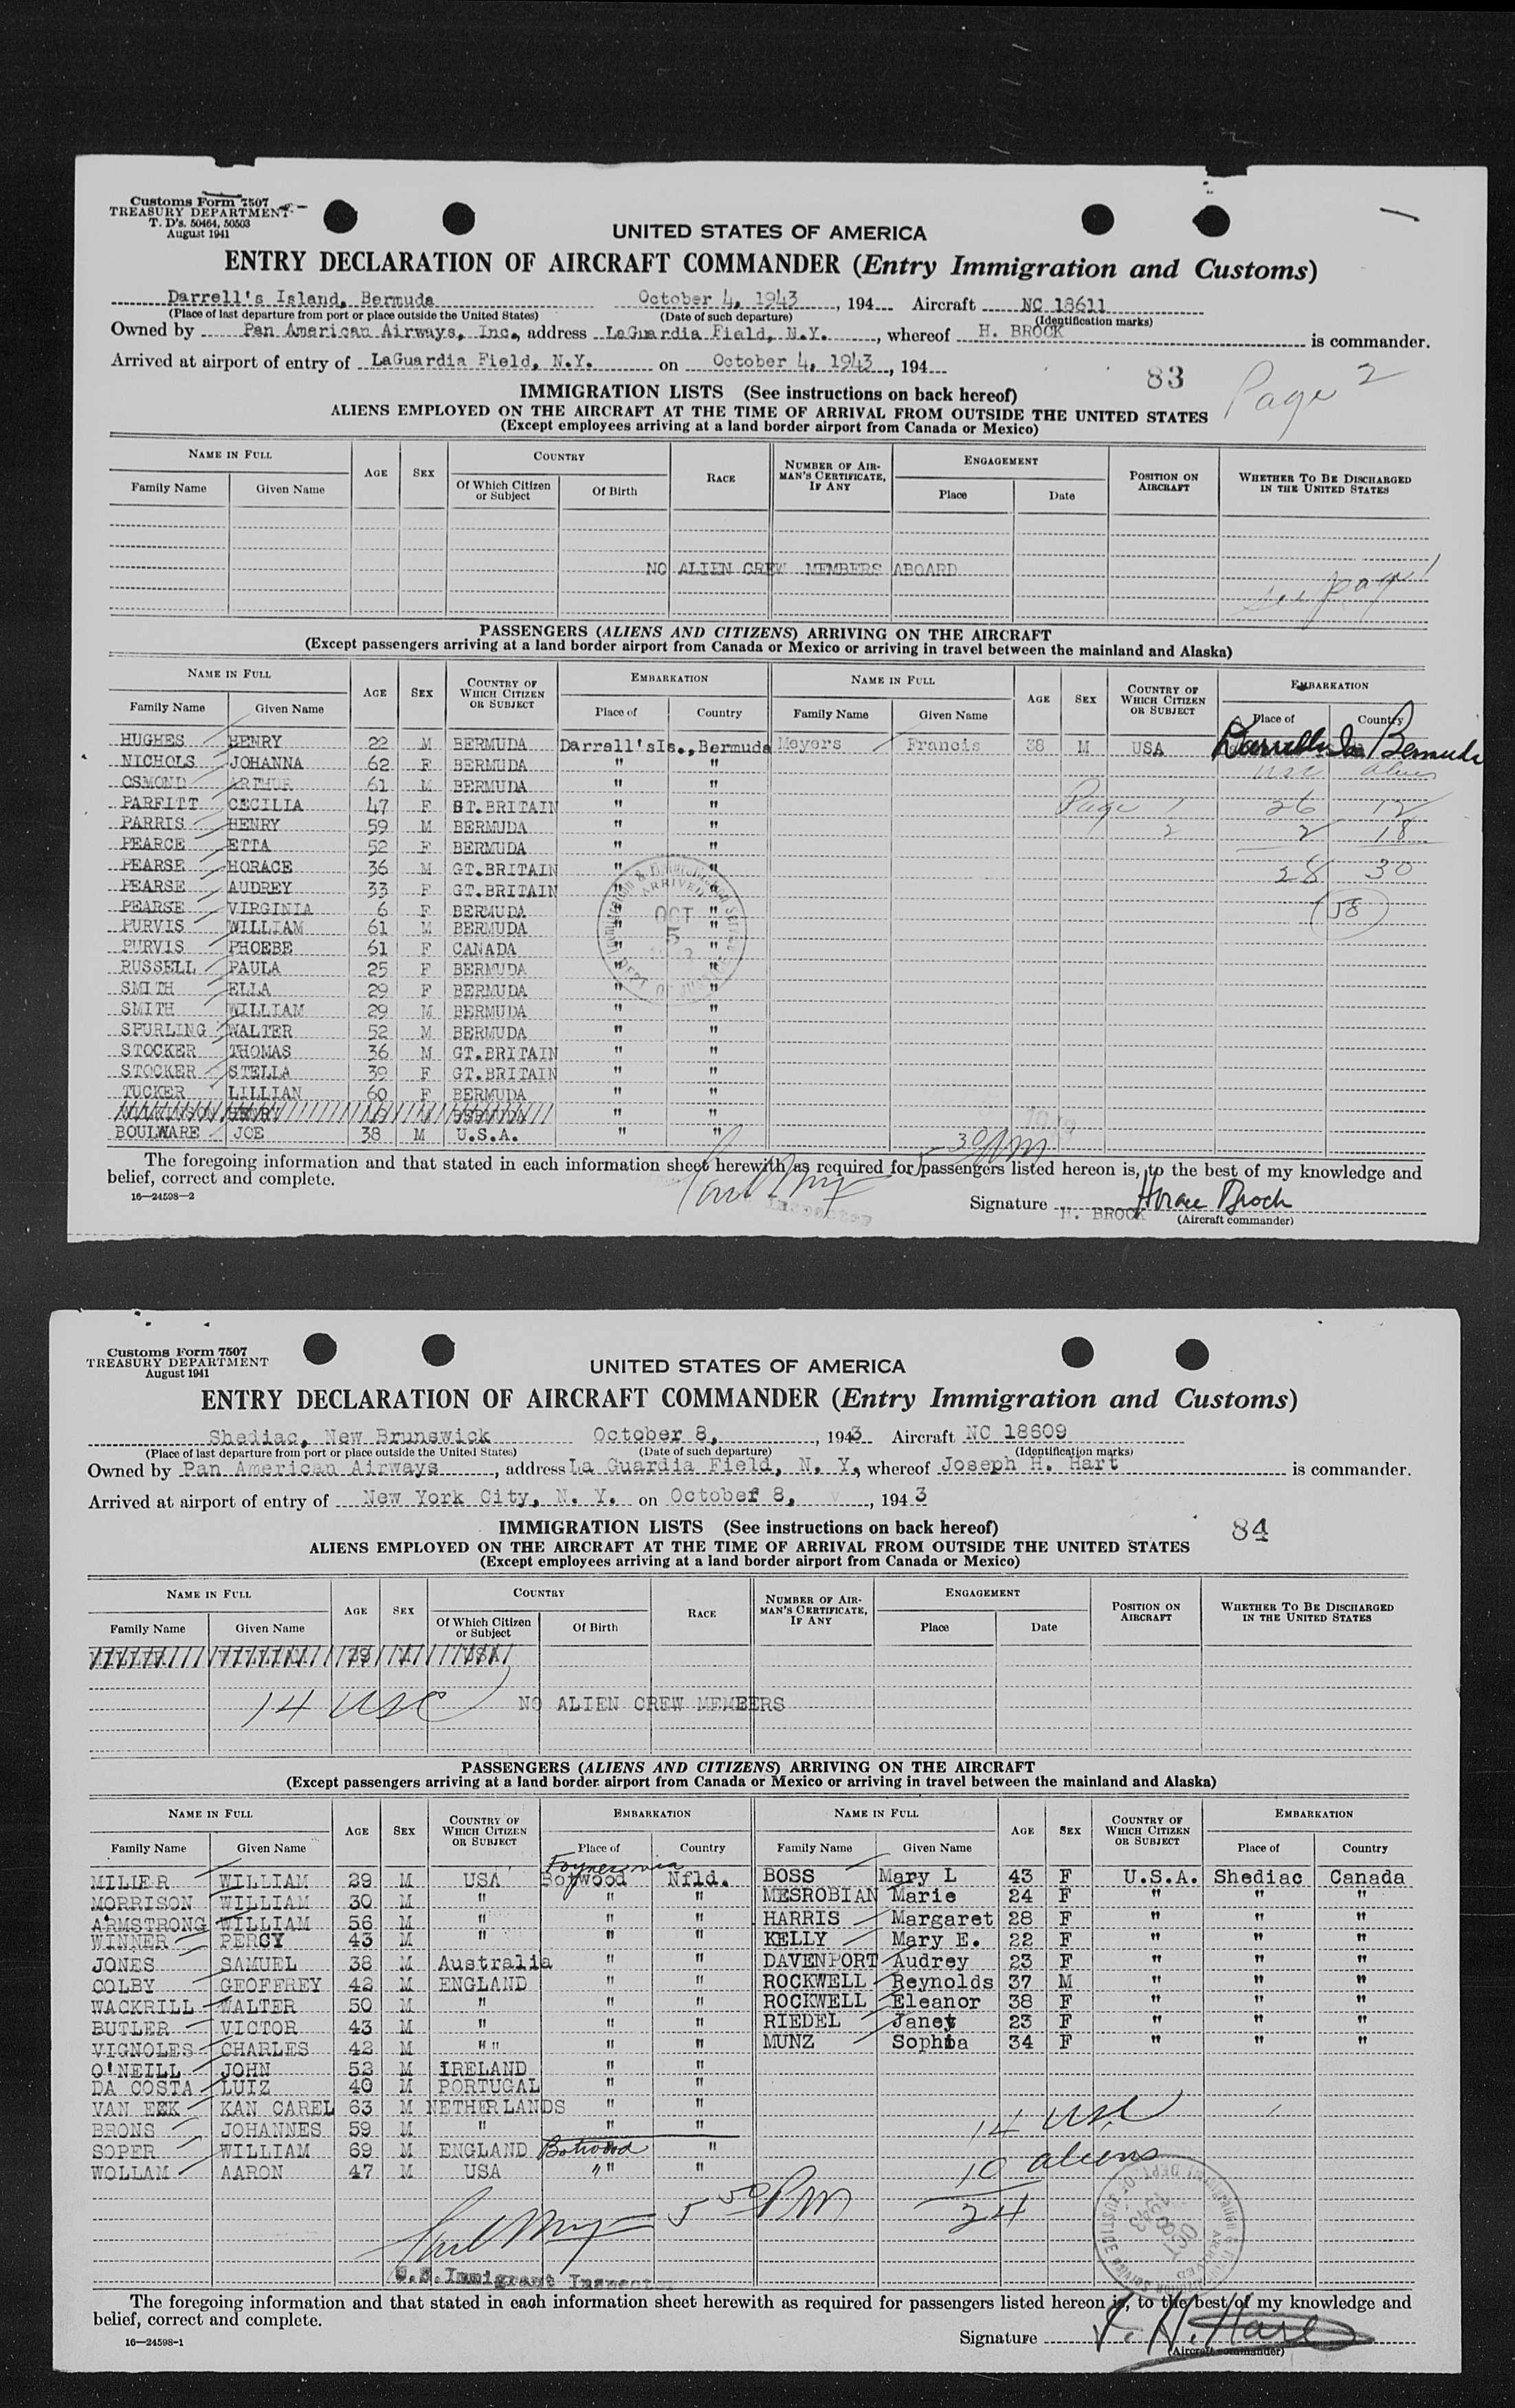 Customs Form 7507
TREASURY DEPARTMENT
T. D's. 50464, 50503
August 1941
UNITED STATES OF AMERICA
ENTRY DECLARATION OF AIRCRAFT COMMANDER (Entry Immigration and Customs)
Darrell's Island, Bermuda October 4, 1943, 194 Aircraft NC 18611
(Place of last departure from port or place outside the United States) (Date of such departure) (Identification marks)
Owned by Pan American Airways, Inc., address LaGuardia Field, N.Y., whereof H. BROCK is commander.
Arrived at airport of entry of LaGuardia Field, N.Y. on October 4, 1943, 194
83 Page 2
IMMIGRATION LISTS (See instructions on back hereof)
ALIENS EMPLOYED ON THE AIRCRAFT AT THE TIME OF ARRIVAL FROM OUTSIDE THE UNITED STATES
(Except employees arriving at a land border airport from Canada or Mexico)
NAME IN FULL AGE SEX COUNTRY RACE NUMBER OF AIRMAN'S CERTIFICATE, IF ANY ENGAGEMENT POSITION ON AIRCRAFT WHETHER TO BE DISCHARGED IN THE UNITED STATES
Family Name Given Name Of Which Citizen or Subject Of Birth Place Date
NO ALIEN CREW MEMBERS ABOARD
see page 1
PASSENGERS (ALIENS AND CITIZENS) ARRIVING ON THE AIRCRAFT
(Except passengers arriving at a land border airport from Canada or Mexico or arriving in travel between the mainland and Alaska)
NAME IN FULL AGE SEX COUNTRY OF WHICH CITIZEN OR SUBJECT EMBARKATION NAME IN FULL AGE SEX COUNTRY OF WHICH CITIZEN OR SUBJECT EMBARKATION
Family Name Given Name Place of Country Family Name Given Name Place of Country
HUGHES HENRY 22 M BERMUDA Darrell's Is., Bermuda Meyers Francis 38 M USA Darrells Is Bermuda
NICHOLS JOHANNA 62 F BERMUDA " " usc aliens
OSMOND ARTHUR 61 M BERMUDA " "
PARFITT CECILIA 47 F GT.BRITAIN " " Page 1 26 12
PARRIS HENRY 59 M BERMUDA " " 2 2 18
PEARCE ETTA 52 F BERMUDA " "
PEARSE HORACE 36 M GT.BRITAIN " " 28 30
PEARSE AUDREY 33 F GT.BRITAIN " "
PEARSE VIRGINIA 6 F BERMUDA " " 58
PURVIS WILLIAM 61 M BERMUDA " "
PURVIS PHOEBE 61 F CANADA " "
RUSSELL PAULA 25 F BERMUDA " "
SMITH ELLA 29 F BERMUDA " "
SMITH WILLIAM 29 M BERMUDA " "
SPURLING WALTER 52 M BERMUDA " "
STOCKER THOMAS 36 M GT.BRITAIN " "
STOCKER STELLA 39 F GT.BRITAIN " "
TUCKER LILLIAN 60 F BERMUDA " "
" "
BOULWARE JOE 38 M U.S.A. " "
ARRIVED
OCT 5
The foregoing information and that stated in each information sheet herewith as required for passengers listed hereon is, to the best of my knowledge and
belief, correct and complete.
16—24598—2
Signature H. BROCK Horace Brock
(Aircraft commander)
Customs Form 7507
TREASURY DEPARTMENT
August 1941
UNITED STATES OF AMERICA
ENTRY DECLARATION OF AIRCRAFT COMMANDER (Entry Immigration and Customs)
Shediac, New Brunswick October 8, 1943 Aircraft NC 18609
(Place of last departure from port or place outside the United States) (Date of such departure) (Identification marks)
Owned by Pan American Airways, address La Guardia Field, N. Y., whereof Joseph H. Hart is commander.
Arrived at airport of entry of New York City, N. Y. on October 8, 1943
84
IMMIGRATION LISTS (See instructions on back hereof)
ALIENS EMPLOYED ON THE AIRCRAFT AT THE TIME OF ARRIVAL FROM OUTSIDE THE UNITED STATES
(Except employees arriving at a land border airport from Canada or Mexico)
NAME IN FULL AGE SEX COUNTRY RACE NUMBER OF AIRMAN'S CERTIFICATE, IF ANY ENGAGEMENT POSITION ON AIRCRAFT WHETHER TO BE DISCHARGED IN THE UNITED STATES
Family Name Given Name Of Which Citizen or Subject Of Birth Place Date
14 usc NO ALIEN CREW MEMBERS
PASSENGERS (ALIENS AND CITIZENS) ARRIVING ON THE AIRCRAFT
(Except passengers arriving at a land border airport from Canada or Mexico or arriving in travel between the mainland and Alaska)
NAME IN FULL AGE SEX COUNTRY OF WHICH CITIZEN OR SUBJECT EMBARKATION NAME IN FULL AGE SEX COUNTRY OF WHICH CITIZEN OR SUBJECT EMBARKATION
Family Name Given Name Place of Country Family Name Given Name Place of Country
Foynes via
MILLER WILLIAM 29 M USA Botwood Nfld. BOSS Mary L 43 F U.S.A. Shediac Canada
MORRISON WILLIAM 30 M " " " MESROBIAN Marie 24 F " " "
ARMSTRONG WILLIAM 56 M " " " HARRIS Margaret 28 F " " "
WINNER PERCY 43 M " " " KELLY Mary E. 22 F " " "
JONES SAMUEL 38 M Australia " " DAVENPORT Audrey 23 F " " "
COLBY GEOFFREY 42 M ENGLAND " " ROCKWELL Reynolds 37 M " " "
WACKRILL WALTER 50 M " " " ROCKWELL Eleanor 38 F " " "
BUTLER VICTOR 43 M " " " RIEDEL Janet 23 F " " "
VIGNOLES CHARLES 42 M " " " " MUNZ Sophia 34 F " " "
O'NEILL JOHN 52 M IRELAND " "
DA COSTA LUIZ 40 M PORTUGAL " "
VAN EEK KAN CAREL 63 M NETHERLANDS " "
BRONS JOHANNES 59 M " " " 14 usc
SOPER WILLIAM 69 M ENGLAND Botwood " 10 aliens
WOLLAM AARON 47 M USA " " "
5 50 PM 24
U.S. Immigrant Inspector
The foregoing information and that stated in each information sheet herewith as required for passengers listed hereon is, to the best of my knowledge and
belief, correct and complete.
16—24598-1
Signature J. H. Hart
(Aircraft commander)